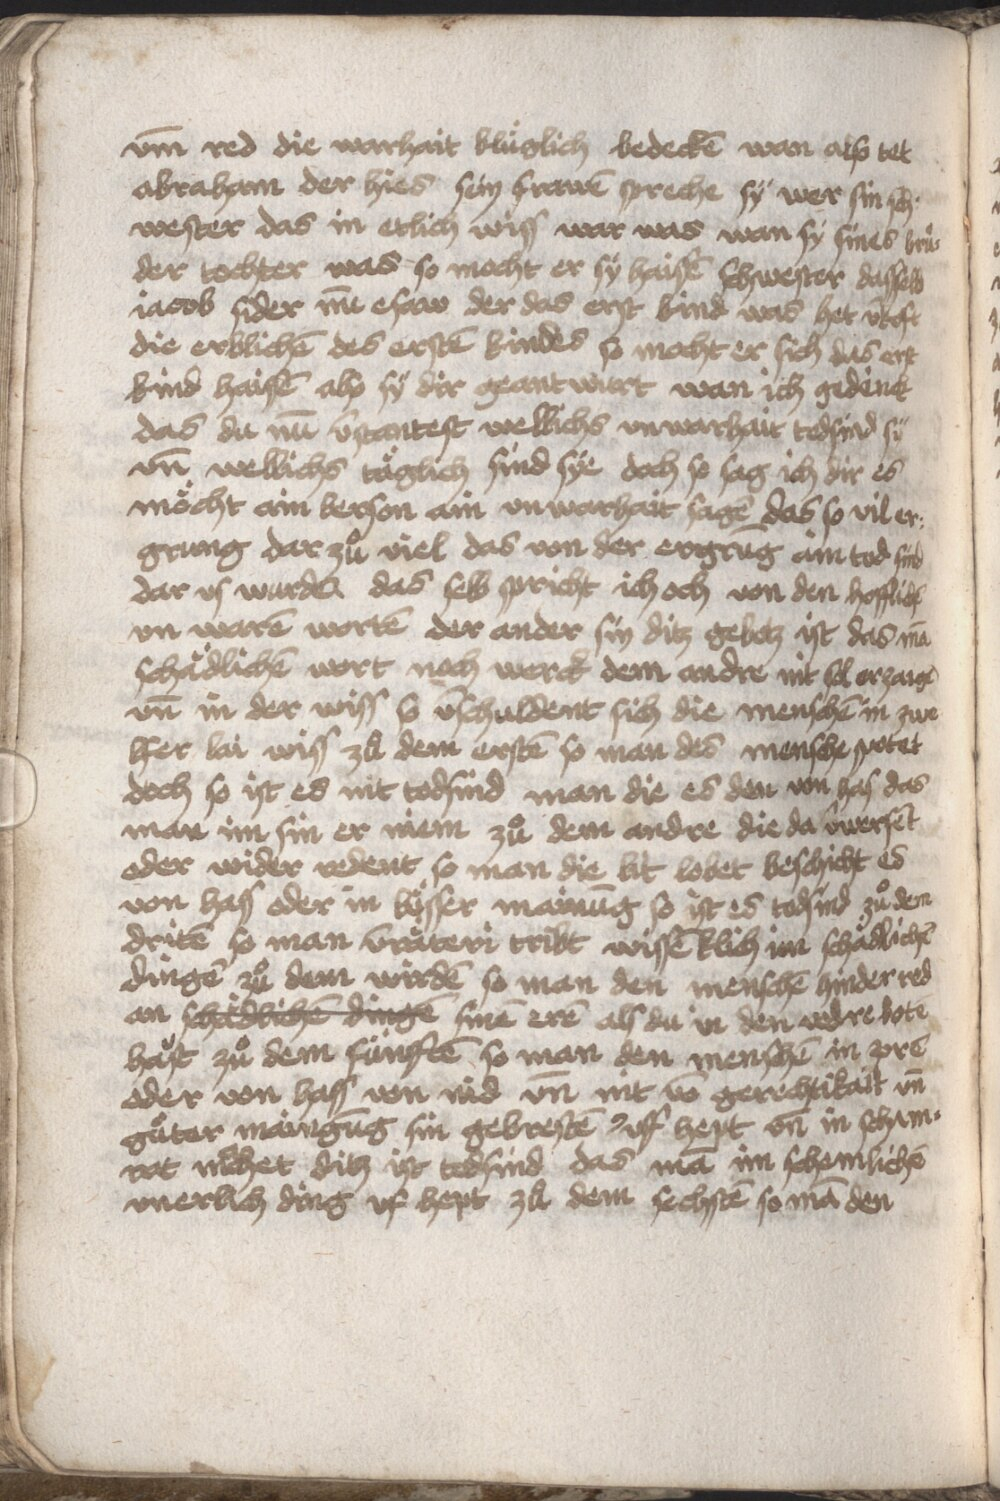 vm̄ red die warhait klüglich bedeckē wan also tet
abraham der hies sein frawē spreche sÿ wer sin sch¬
wester das in etlich wiss war was wan sÿ sines brů¬
der tochter was so mocht er sÿ haisē schwester dasselb
iacob sider im̄e esaw der das erst kind was het v̄koft
die erblichē des erstē kindes so mocht er sich das erst
kind haisē also sÿ dir geantwurt wan ich gedenck
das du nū v̄stantest wellichs vnwarhait todsind sÿ
vn̄ wellichs täglich sind sÿe doch so sag ich dir es
möcht ain berson ain vnwarhait sagē das so vil er¬
grung dar zů viel das von der ergrūg ain tod sind
dar vs wurde das selb spricht ich och von den
vn warē wortē der ander sin ditz gebotz ist das mā
schädlichē wort noch werck dem andre nit sol erzaigē
vn̄ in der wiss so v̄schuldent sich die menschē in zwe
lfer lai wiss zů dem erstē so man des mensche spotet
doch so ist es nit todsind man die es den von has das
man im sin er niem zů dem andre die da
oder wider redent so man die lüt lobet beschicht es
von hass oder in bösser mainūg so ist es todsind zů dem
dritē so man v̄räteri tribt wissēklich im schädlichē
dingē zů dem wirdē so man den menschē hinder red
an schädlichē dingē sinē erē als du in den vedre botē
haust zů dem fünfftē so man den menschē in zorē
oder von hass von nid vn̄ nit vō gerechtikait vn̄
gůter maingūg sin gebrestē vff hept vn̄ in scham¬
rot machet ditz ist todsind das mā im schemlichē
vnerlich ding vf hept zů dem sechstē so mā den